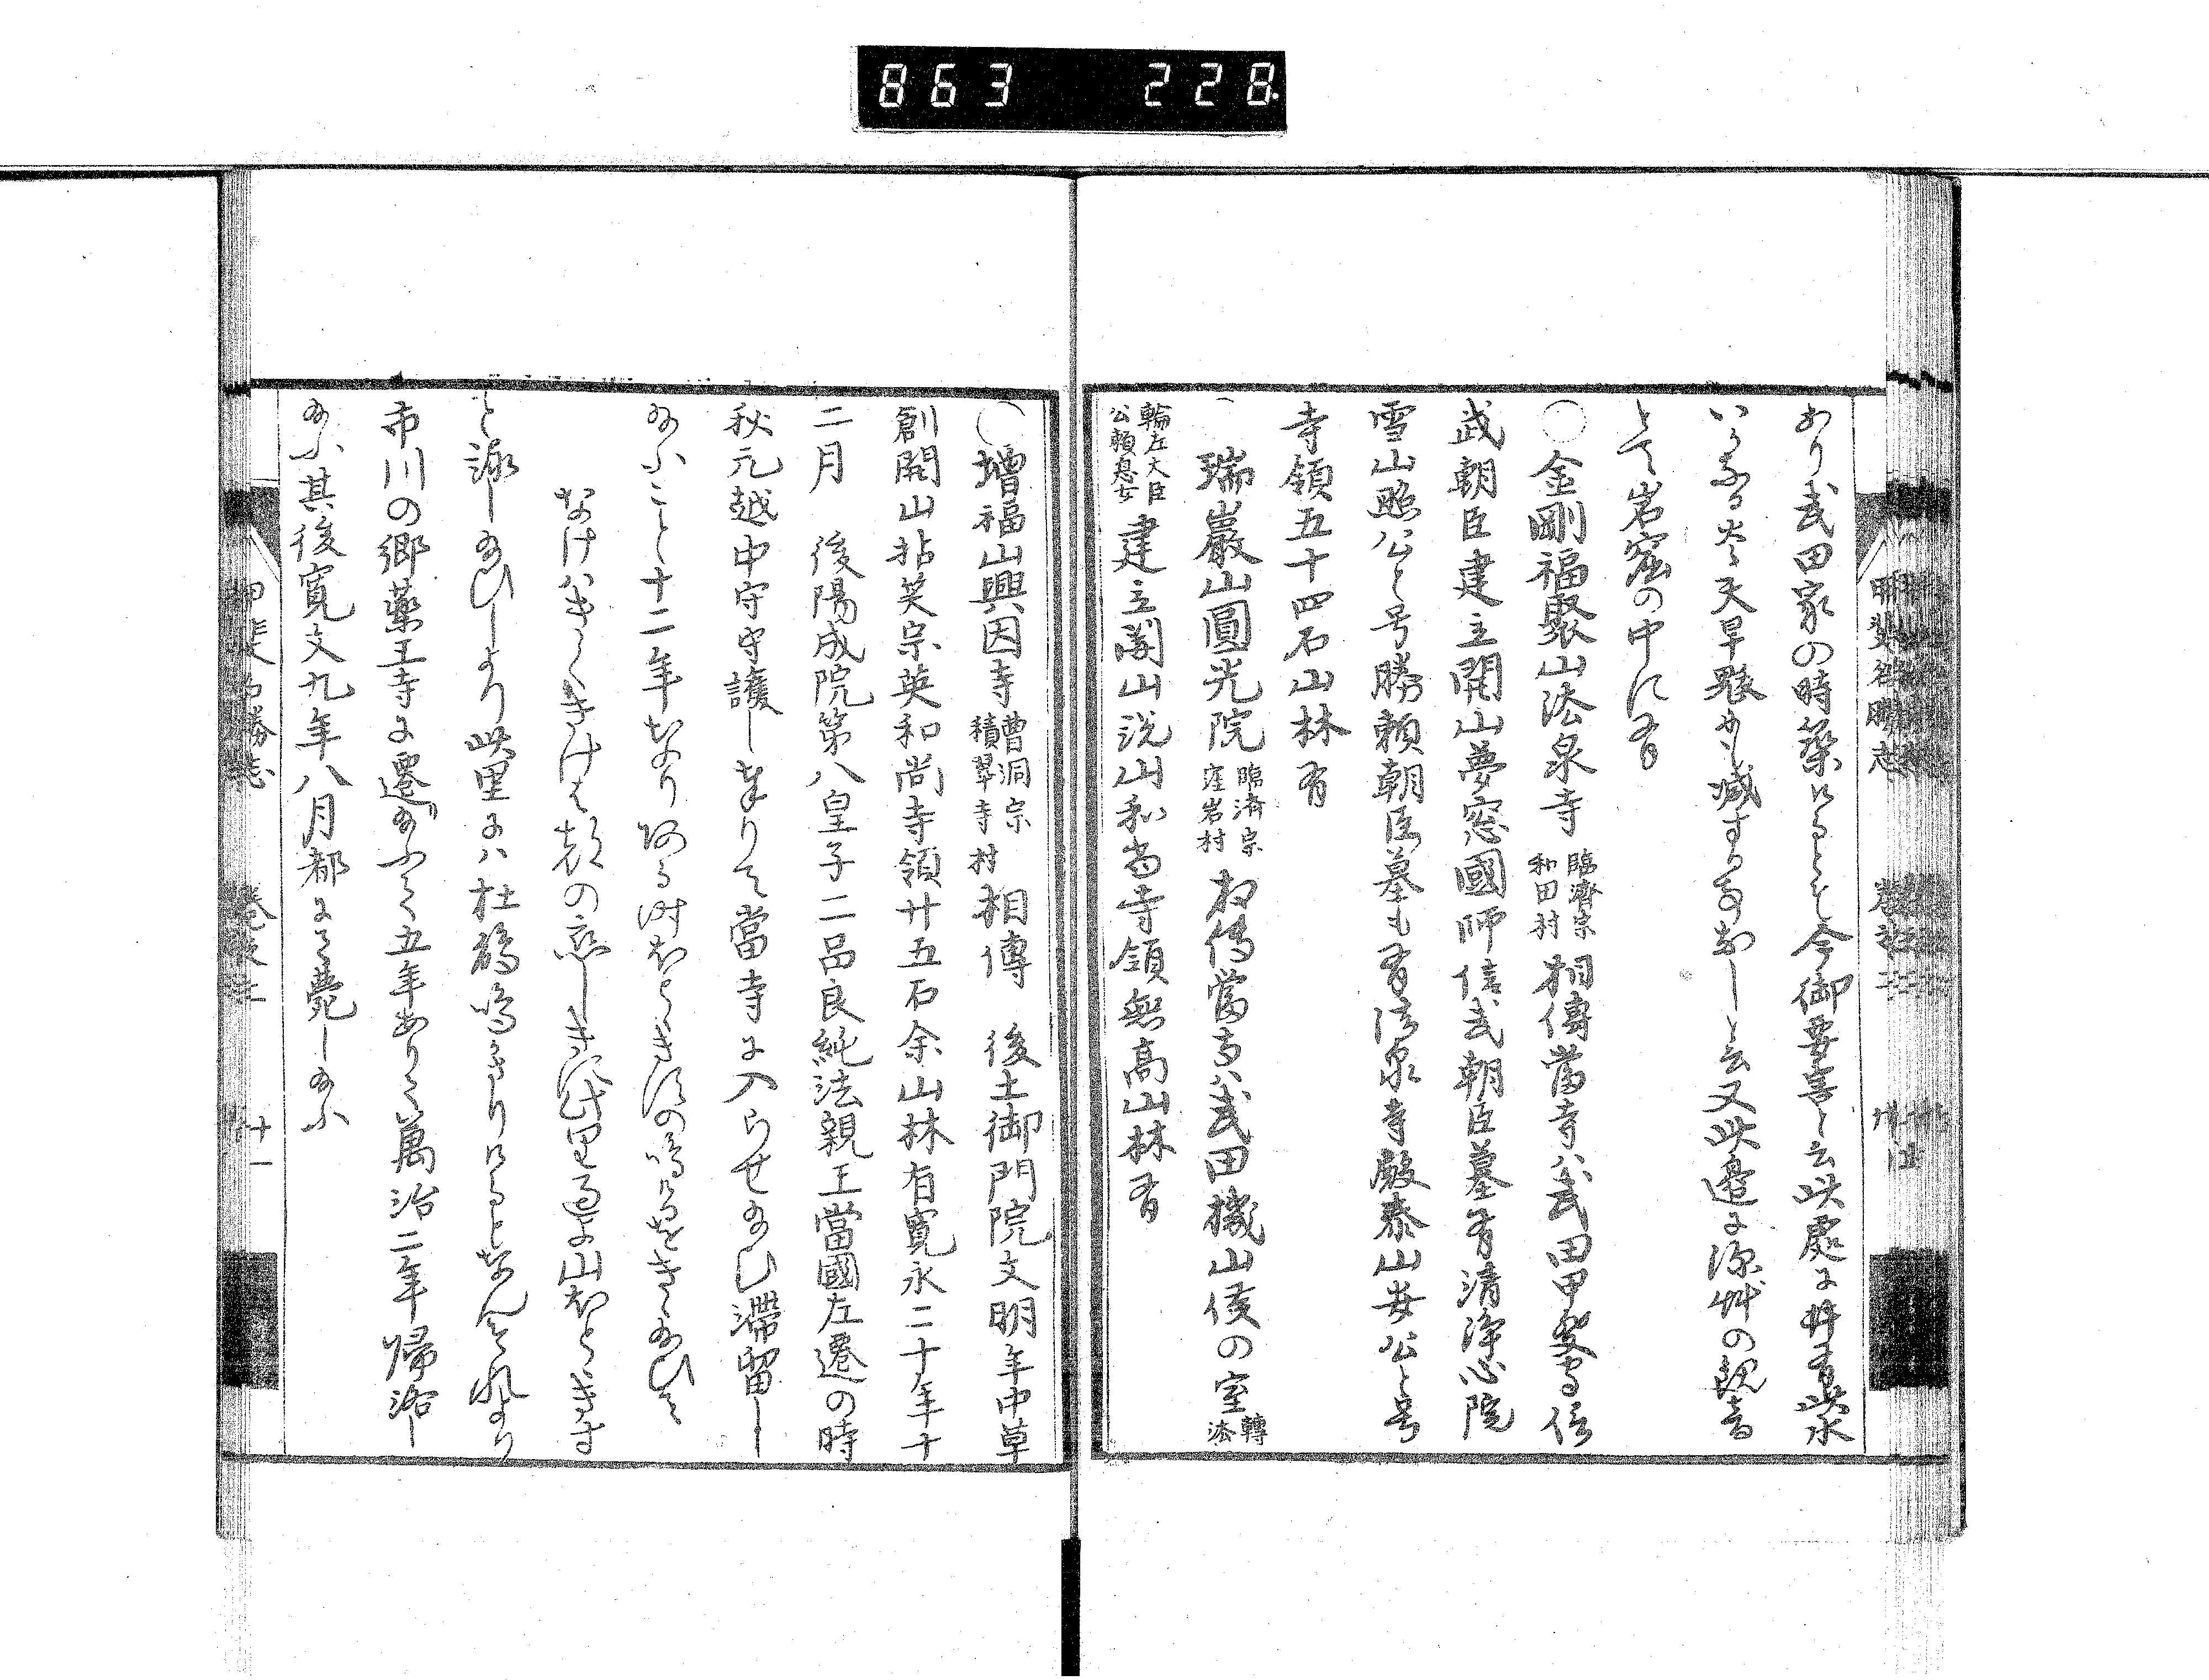 863 228
あり武田家の時築けるとそ今御要害と云此處に井有此水
いかなる大天旱點も減する事なしと云又此邊に深草の観音
とて岩窟の中に有
〇金剛福聚山法泉寺 臨濟宗 和田村 相傳當寺ハ武田甲斐守信
武朝臣建立開山夢窓國師信武朝臣墓有清淨心院
雪山照公と号勝頼朝臣墓も有法泉寺殿泰山安公と号
寺領五十四石山林有
瑞巖山圓光院 臨濟宗 窪岩村 相傳當寺ハ武田機山侯の室 轉法
輪左大臣公頼息女 建立開山説山和尚寺領無高山林有
〇增福山興因寺 曹洞宗 積翠寺村 相傳 後土御門院文明年中草
創開山拈笑宗英和尚寺領廿五石余山林有寛永二十年十
二月 後陽成院第八皇子二品良純法親王當國左遷の時
秋元越中守守護し奉りて當寺に入らせ給ひ滞留し
給ふこと十二年なり或る時ほとゝきすの鳴けるをきゝ給ひて
なけはきくきけは都の恋しきに此里過よ山ほとゝきす
と詠し給ひしより此里にハ杜鵑鳴さりけるとなん夫より
市川の郷薬王寺に遷給ふて五年ありて萬治二年帰洛し
給ふ其後寛文九年八月都にて薨し給ふ
甲斐名勝志 巻之二 十一